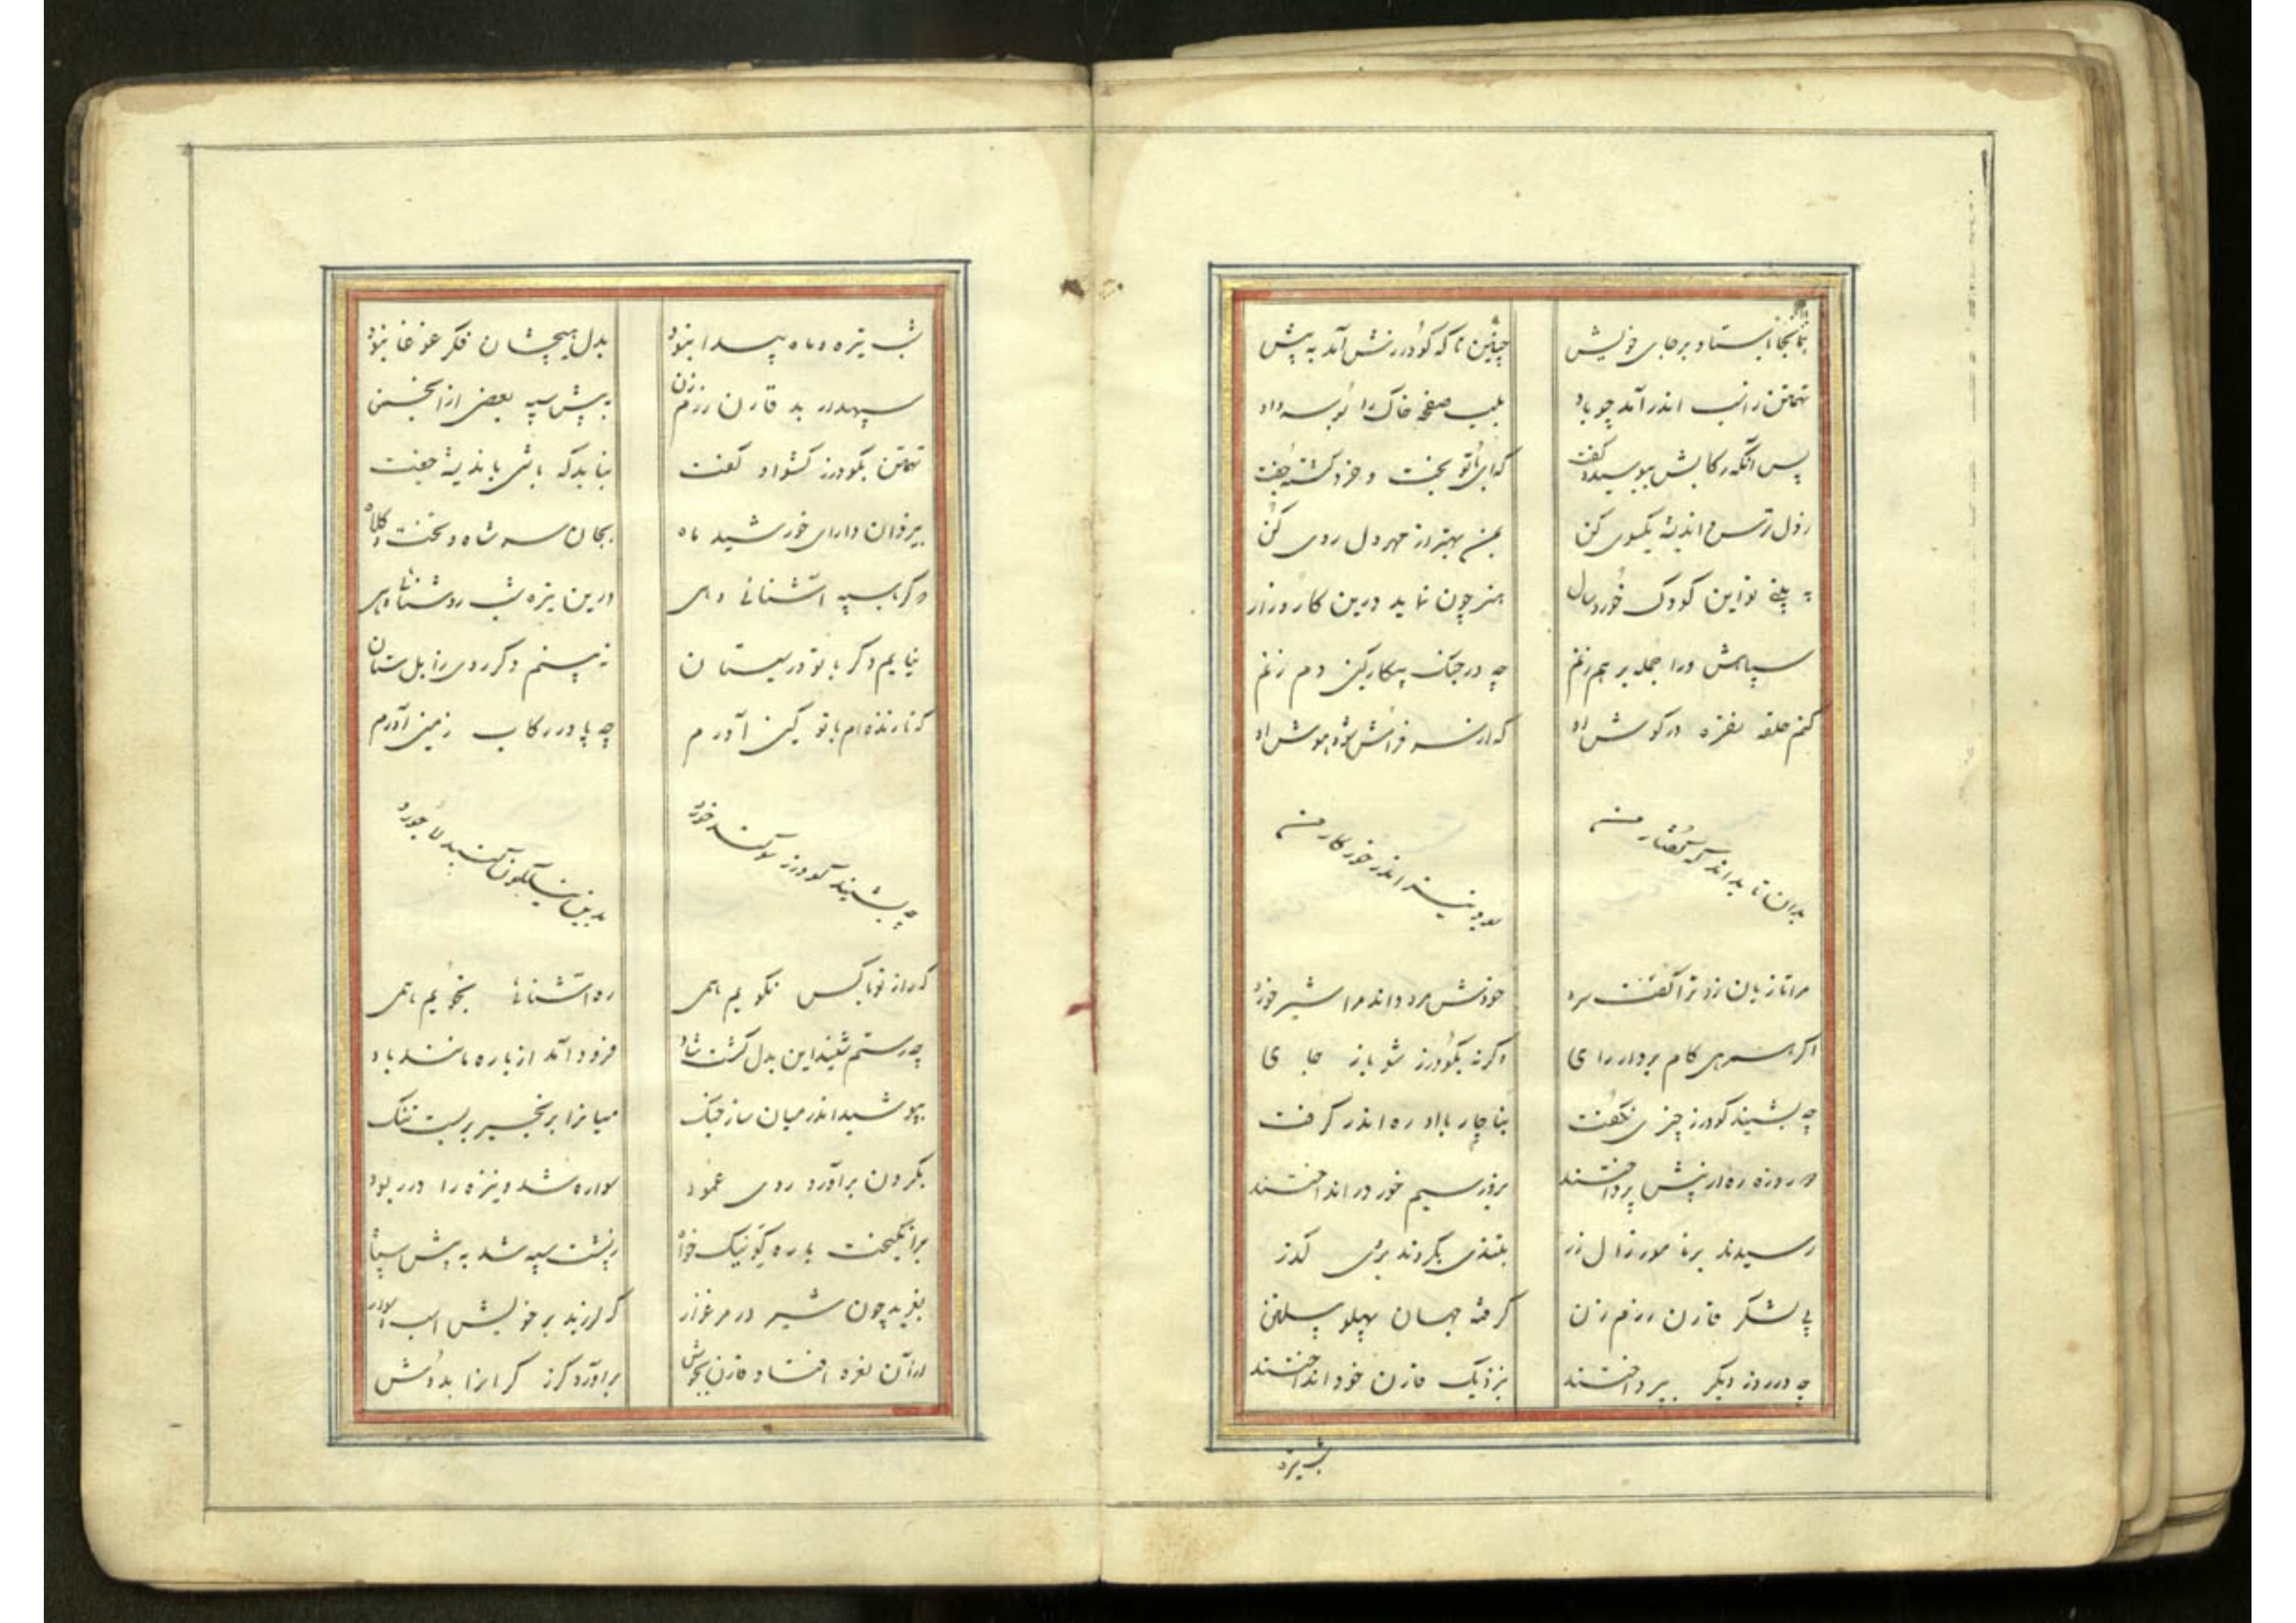 بنابجا بایستاد بر جای خویش چنین تا که کودرزش آمد به پیش
تهمتن رانب اندر آمد چو باد بلب صفحه خاک را بوسه داد
پس آنگه رکابش ببوسید و گفت که ای با تو بخت و خرد گشته جفت
زدل ترس و اندیشه یکسوی کن بمن بهتر از مهر دل روی کن
به پنی تو این کودک خورد سال هنر چون نماید درین کارزار
سپاهش ورا جمله بر هم زنم چه در جنک پیکار کین دم زنم
کنم حلقه نقره در کوش او که از سر فرامش شود هوش او
بدان تا بداند که گفتار من بود نیز اندر خور کار من
مرا تا زیان زد ترا گفت سرد خودش مرد داند مرا شیر خورد
اگر همسری کام بردار رای اگرنه بکودرز شو باز جای
چه بشنید کودرز چیزی نگفت بناچار با او ره اندر گرفت
دو روزه ره از پیش پرداختند بروز سیم خور در انداختند
رسیدند بر نامور زال زر بتندی بکردند بروی گذر
پی لشکر قارن رزم زن گرفته جهان پهلو پیلتن
چه در روز دیگر بپرداختند بنزدیک قارن خود انداختند
شب تیره
شب تیره و ماه پیدا نبود بدل هیچشان فکر غوغا نبود
سپهدار بد قارن رزم زن به پیش سپه بعضی از انجمن
تهمتن بکودرز کشواد گفت نباید که باشی باندیشه جفت
بیزدان دارای خورشید ماه بجان سر شاه و تخت و کلاه
دگر با سپه آشنائی دهی درین تیره شب روشنائی دهی
نیایم دگر با تو در سیستان نه بینم دگر روی زابلستان
که تا زنده ام با تو کین آورم چه پا در رکاب زمین آورم
چه بشنید کودرز سوگند خورد بدین نیلگون گنبد لاجورد
که راز تو با کس نگویم همی ره آشنائی بجویم همی
چه رستم شنید این بدل گشت شاد فرود آمد از باره مانند باد
بپوشید اندر میان ساز جنگ میانرا بزنجیر بر بست تنگ
بگردن برآورد رومی عمود سواره شد و نیزه را در ربود
برانگیخت باره گو نیکخواه ز پشت سپه شد به پیش سپاه
بغرید چون شیر در مرغزار که لرزید بر خویش اسب سوار
از آن نعره افتاد قارن بجوش برآورد گرز گرانرا بدوش